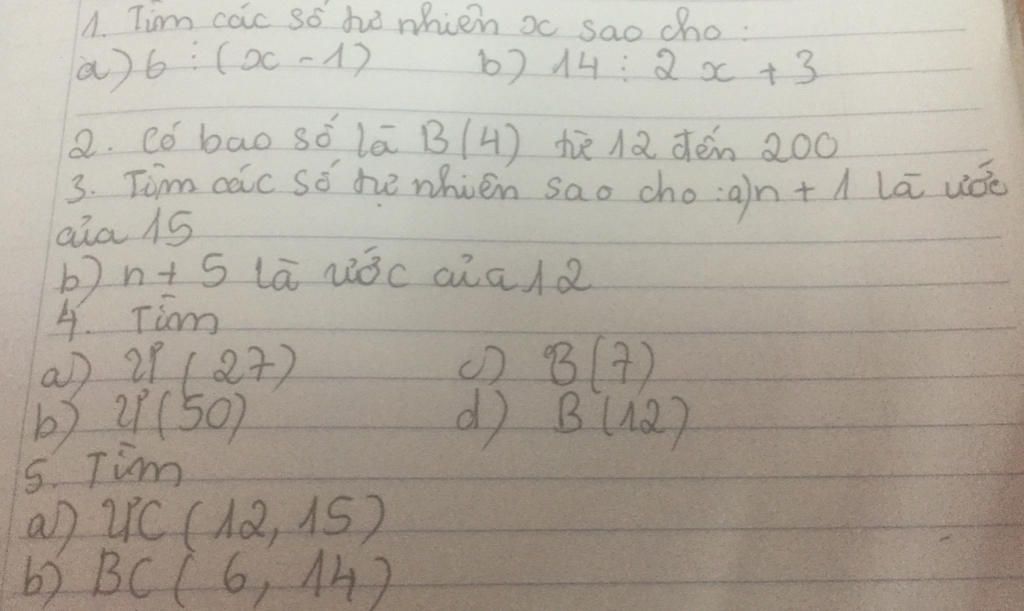 1. Tìm các số tự nhiên x sao cho:
a) 6 ⋮ (x - 1) b) 14 ⋮ 2x + 3
2. Có bao số là B(4) từ 12 đến 200
3. Tìm các số tự nhiên sao cho: a) n + 1 là ước
của 15
b) n + 5 là ước của 12
4. Tìm
a) Ư(27) c) B(7)
b) Ư(50) d) B(12)
5. Tìm
a) ƯC(12, 15)
b) BC(6, 14)